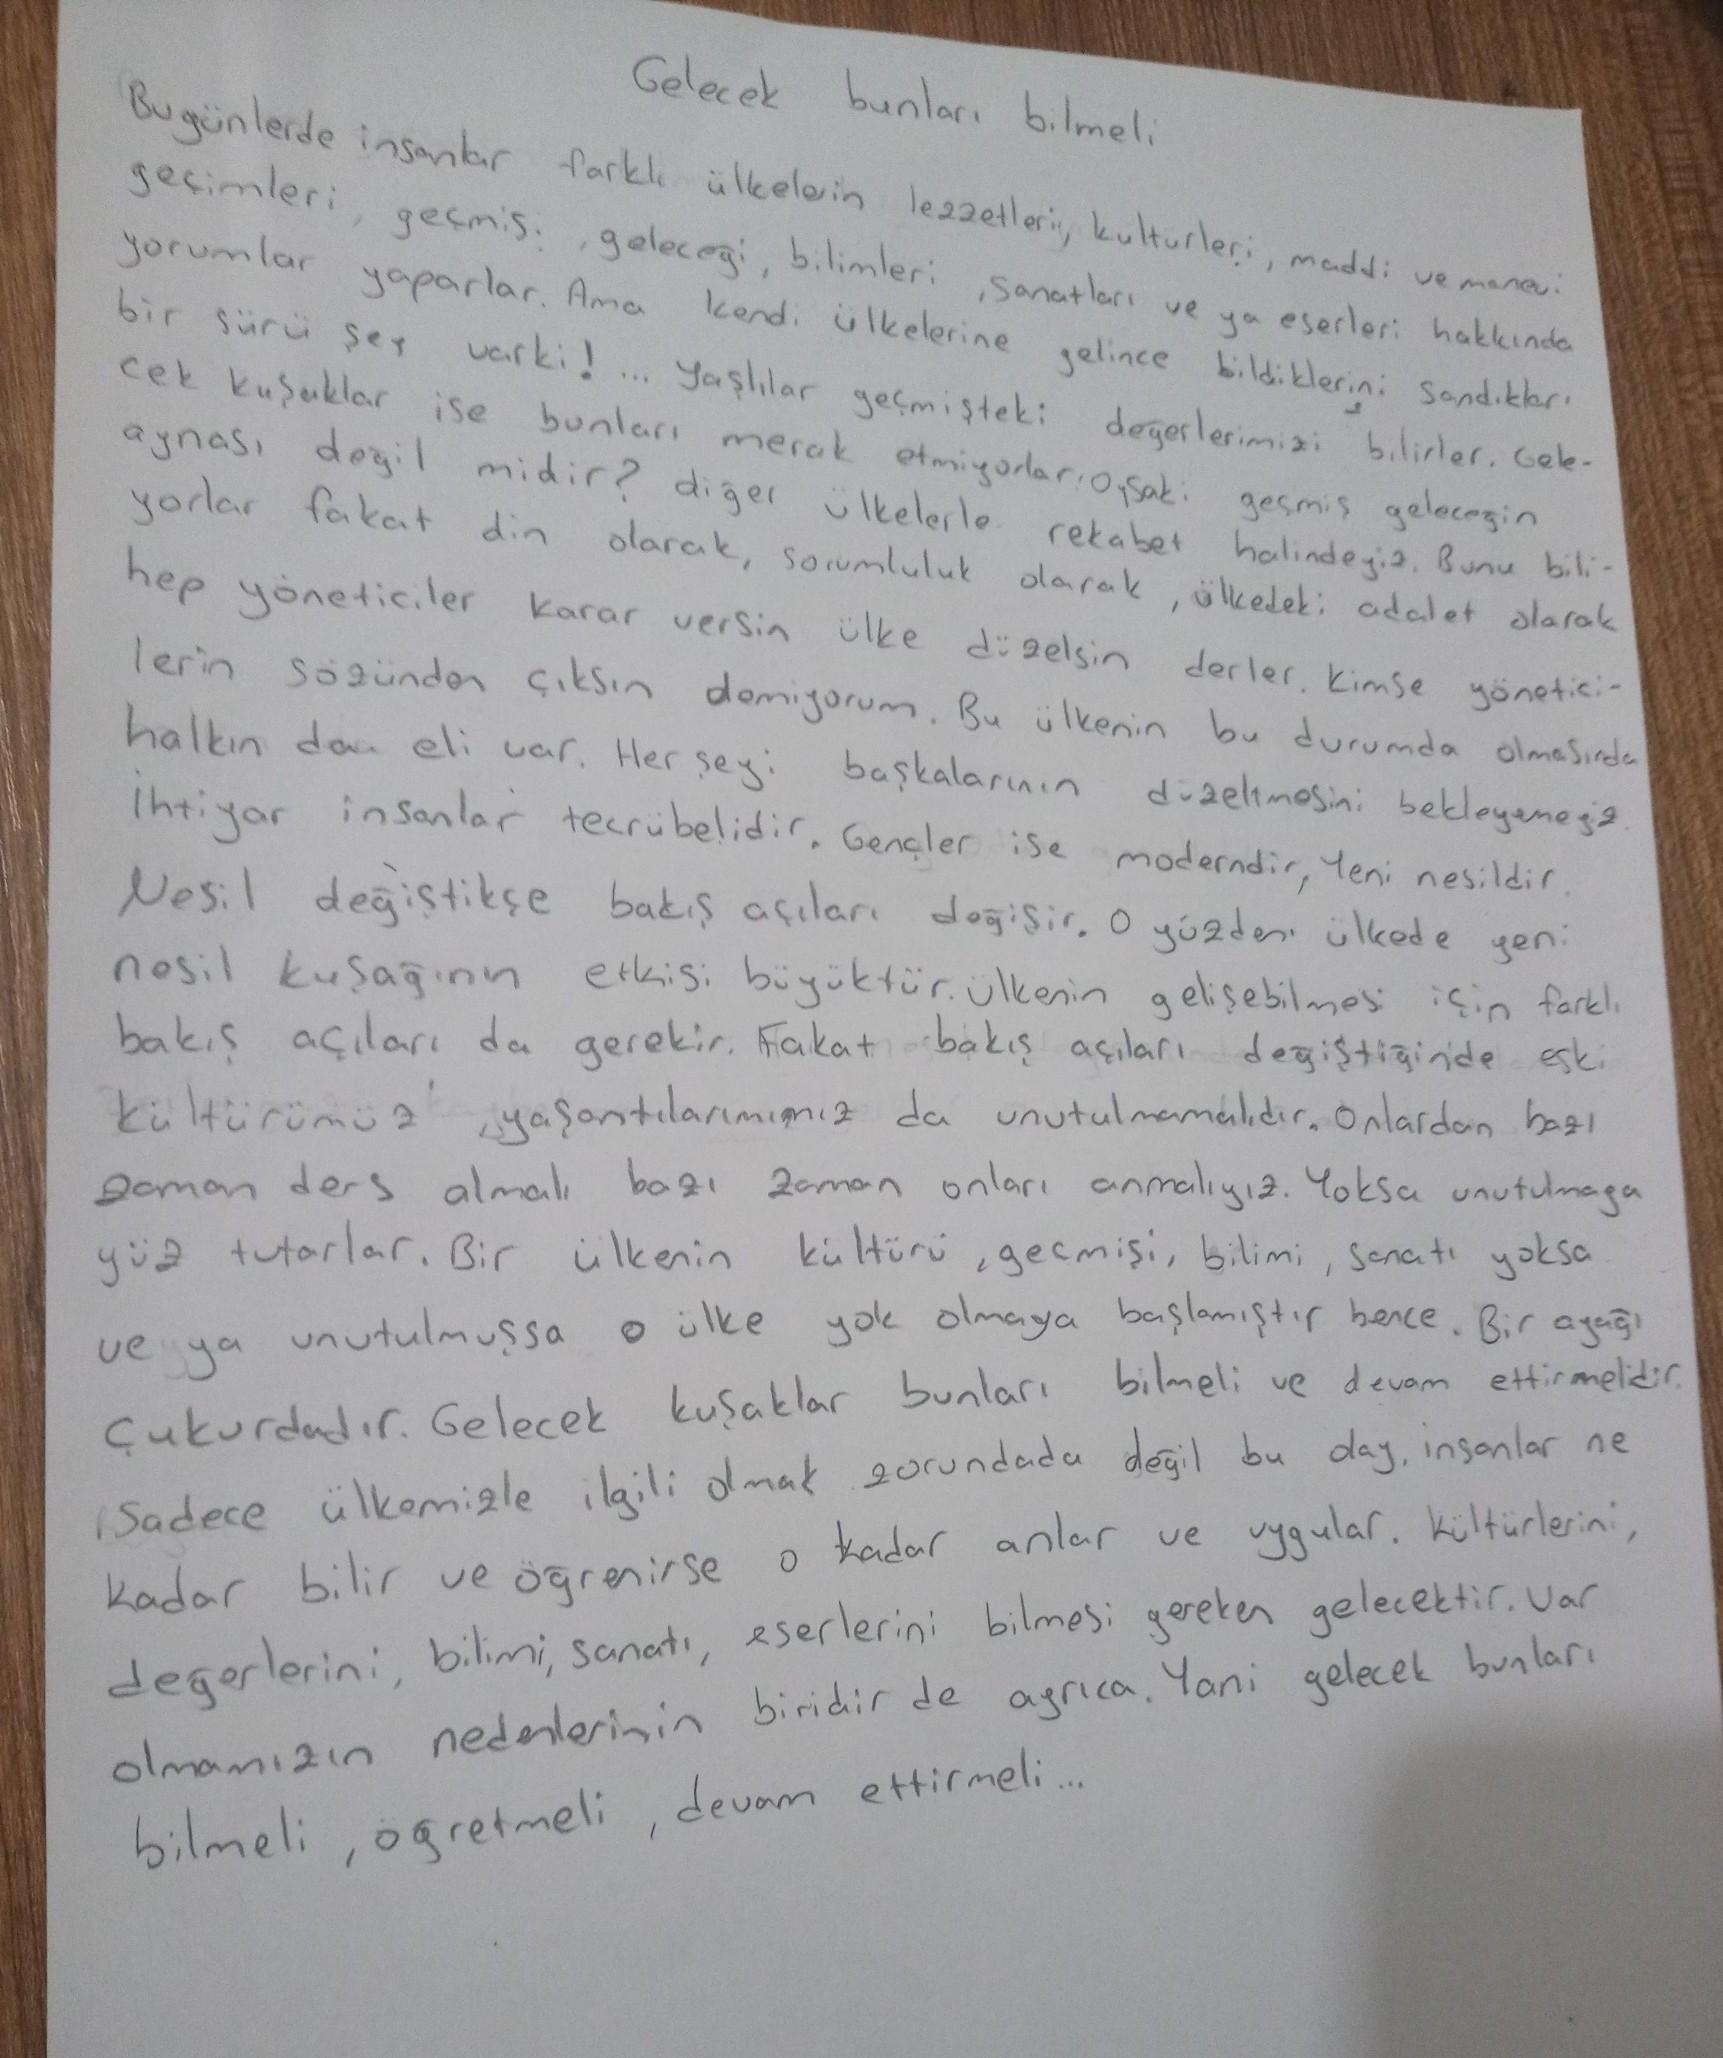 Gelecek bunları bilmeli
Bugünlerde insanlar farklı ülkelerin lezzetleri, kulturleri, maddi ve manevi
geçimleri, geçmişi, geleceği, bilimleri, sanatları ve ya eserleri hakkında
yorumlar yaparlar. Ama kendi ülkelerine gelince bildiklerini sandıkları
bir sürü şey varki!... Yaşlılar geçmişteki değerlerimizi bilirler. Gele-
cek kuşaklar ise bunları merak etmiyorlar. Oysaki geçmiş geleceğin
aynası değil midir? diğer ülkelerle rekabet halindeyiz. Bunu bili-
yorlar fakat din olarak, sorumluluk olarak, ülkedeki adalet olarak
hep yöneticiler karar versin ülke düzelsin derler. Kimse yönetici-
lerin sözünden çıksın demiyorum. Bu ülkenin bu durumda olmasında
halkın da eli var. Her şeyi başkalarının düzeltmesini bekleyemeyiz.
İhtiyar insanlar tecrübelidir. Gençler ise moderndir, Yeni nesildir.
Nesil değiştikçe bakış açıları değişir. O yüzden ülkede yeni
nesil kuşağının etkisi büyüktür. ülkenin gelişebilmesi için farklı
bakış açıları da gerekir. Fakat bakış açıları değiştiğinde eski
kültürümüz, yaşantılarımımız da unutulmamalıdır. Onlardan bazı
zaman ders almalı bazı zaman onları anmalıyız. Yoksa unutulmaya
yüz tutarlar. Bir ülkenin kültürü, geçmişi, bilimi, sanatı yoksa
ve ya unutulmuşsa o ülke yok olmaya başlamıştır bence. Bir ayağı
Çukurdadır. Gelecek kuşaklar bunları bilmeli ve devam ettirmelidir.
Sadece ülkemizle ilgili olmak zorundada değil bu olay, insanlar ne
kadar bilir ve öğrenirse o kadar anlar ve uygular. Kültürlerini,
değerlerini, bilimi, sanatı, eserlerini bilmesi gereken gelecektir. Var
olmamızın nedenlerinin biridir de ayrıca. Yani gelecek bunları
bilmeli, öğretmeli, devam ettirmeli...